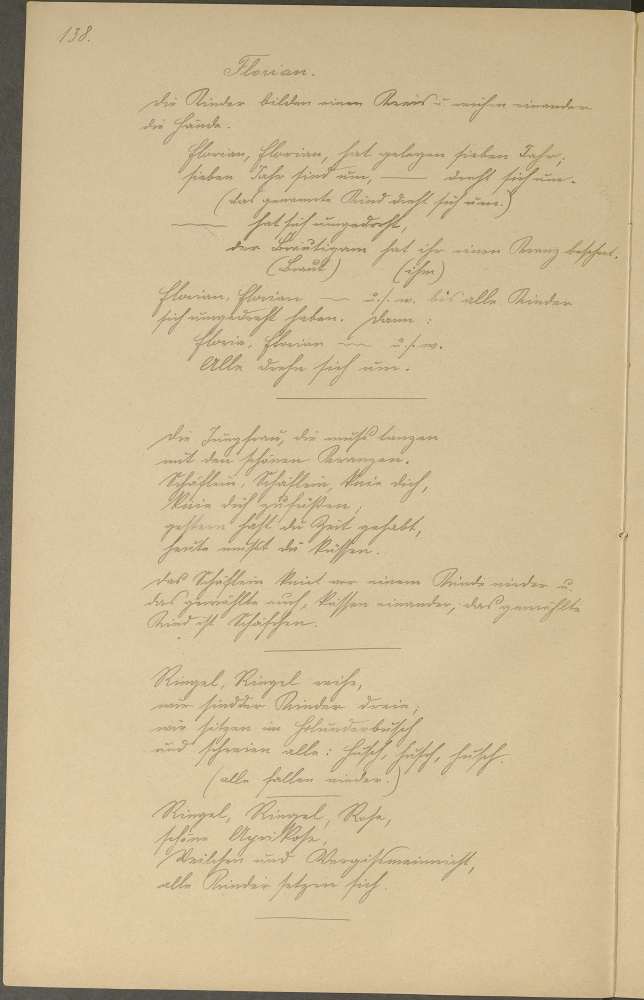 138.
Florian.
Die Kinder bilden einen Kreis u. reichen einander
die Hände.
Florian, Florian, hat gelegen sieben Jahr,
sieben Jahr sind um, — dreht sich um.
(das genannte Kind dreht sich um.)
— hat sich umgedreht,
der Bräutigam hat ihr einen Kranz beschert.
(Braut) (ihm)
Florian, Florian — u.s.w. bis alle Kinder
sich umgedreht haben. Dann:
Floria, Florian — u.s.w.
Alle drehn sich um.
Die Jungfrau, die muß tanzen
mit den schönen Kranzen.
Schäflein, Schäflein, knie dich,
knie dich zu Füßen,
gestern hast du Zeit gehabt,
heute mußt du küssen.
Das Schäflein kniet vor einem Kinde nieder u.
das gewählte auch, küssen einander, das gewählte
Kind ist Schäfchen.
Ringel, Ringel reihe,
wir sind der Kinder dreie,
wir sitzen im Holunderbusch
und schreien alle: husch, husch, husch.
(alle fallen nieder.)
Ringel, Ringel, Rose,
schöne Aprikose,
Veilchen und Vergissmeinnicht,
alle Kinder setzen sich.